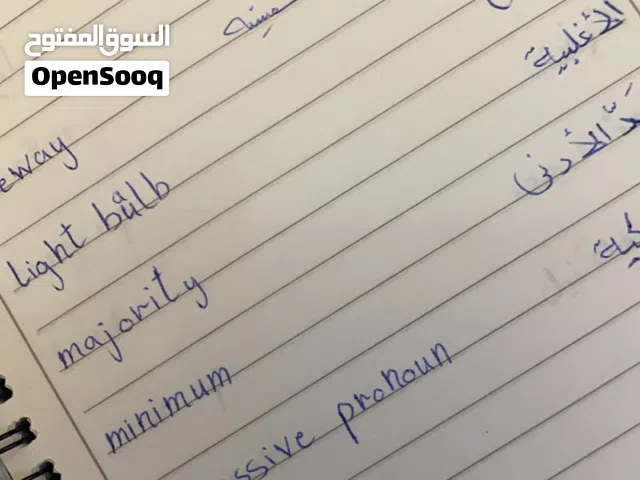 السوق المفتوح
OpenSooq
eway
light bulb
majority الأغلبية
minimum الأدنى
ssive pronoun